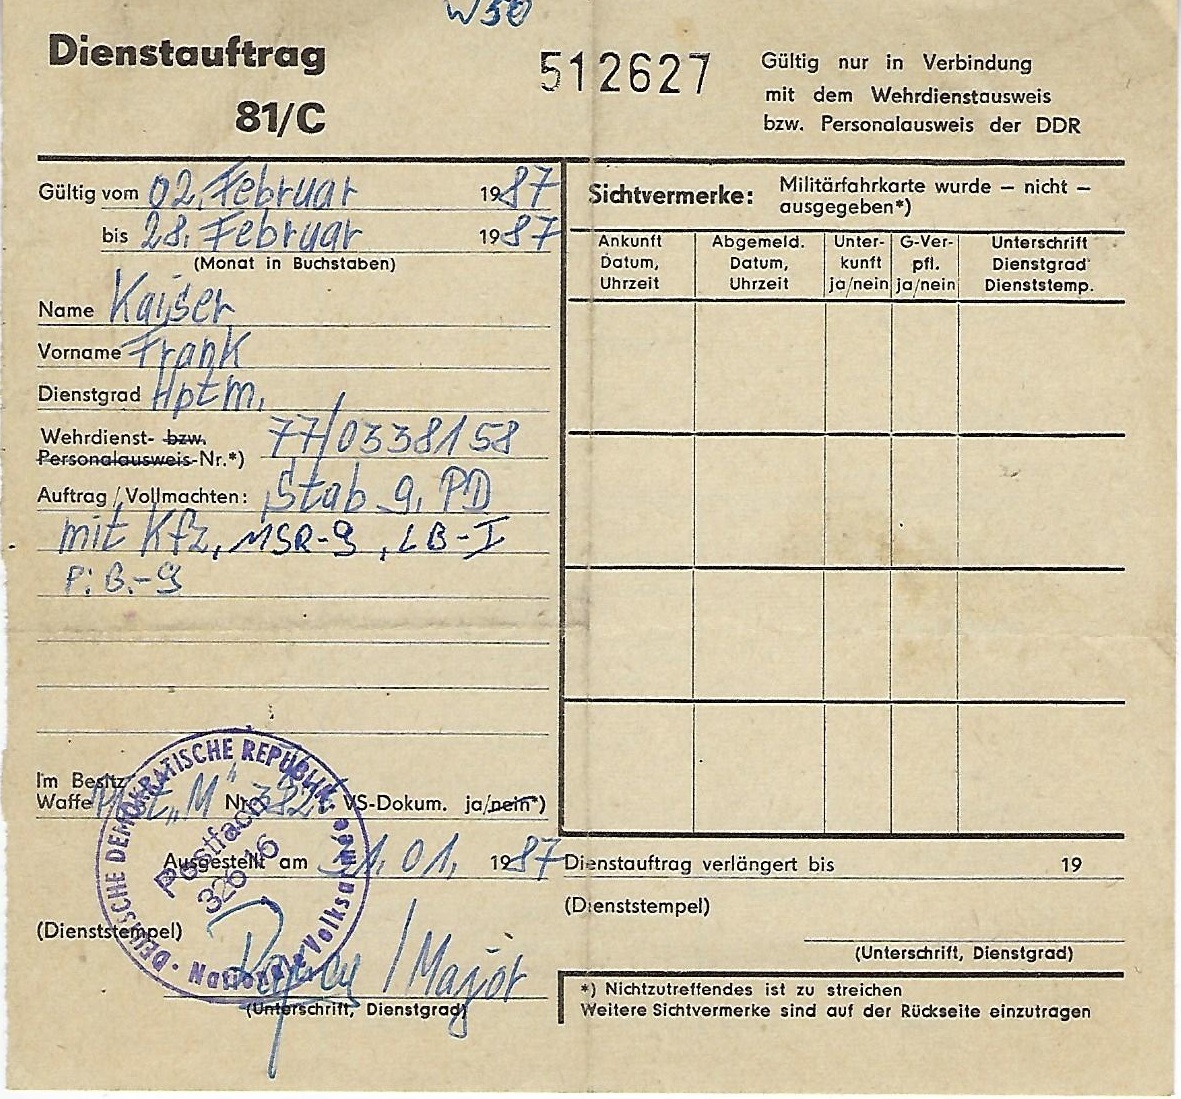 W50
Dienstauftrag
81/C
512627
Gültig nur in Verbindung
mit dem Wehrdienstausweis
bzw. Personalausweis der DDR
Gültig vom 02. Februar 1987
bis 28. Februar 1987
(Monat in Buchstaben)
Name Kaiser
Vorname Frank
Dienstgrad Hptm.
Wehrdienst- bzw. 77/0338158
Personalausweis-Nr.*)
Auftrag/Vollmachten: Stab 9. PD
mit Kfz, MSR-9, LB-I
Pi. B.-9
Im Besitz
Waffe "M" Nr. VS-Dokum. ja/nein*)
Ausgestellt am 01. 1987
(Dienststempel)
/ Major
(Unterschrift, Dienstgrad)
DEUTSCHE DEMOKRATISCHE REPUBLIK
Nationale Volksarmee
Postfach
32616
Sichtvermerke: Militärfahrkarte wurde – nicht –
ausgegeben*)
Ankunft Datum, Uhrzeit
Abgemeld. Datum, Uhrzeit
Unter-kunft ja/nein
G-Ver-pfl. ja/nein
Unterschrift Dienstgrad Dienststemp.
Dienstauftrag verlängert bis 19
(Dienststempel)
(Unterschrift, Dienstgrad)
*) Nichtzutreffendes ist zu streichen
Weitere Sichtvermerke sind auf der Rückseite einzutragen